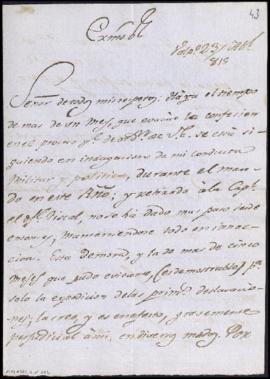 43
Exmo Sor
Valpo 23 de Abl
819
Señor de todo mi respeto: Haya el tiempo
de mas de un mes, que
en el proceso qe de orn. de V.E. se está si-
guiendo en indagacion de mi conducta
Militar y politica, durante el man-
do en este Año; y retirado à la Capl.
el Fiscal, no se ha dado mas paso desde
entonces; manteniendose todo en inac-
cion. Esta Demora, y la de mas de cinco
Meses que pudo evitarse, (es demostrable) pa.
solo la expedicion de las primas. declaracio-
nes; la creo, y es en efecto, gravemente
perjudicial à mi, en diversos modos. Por